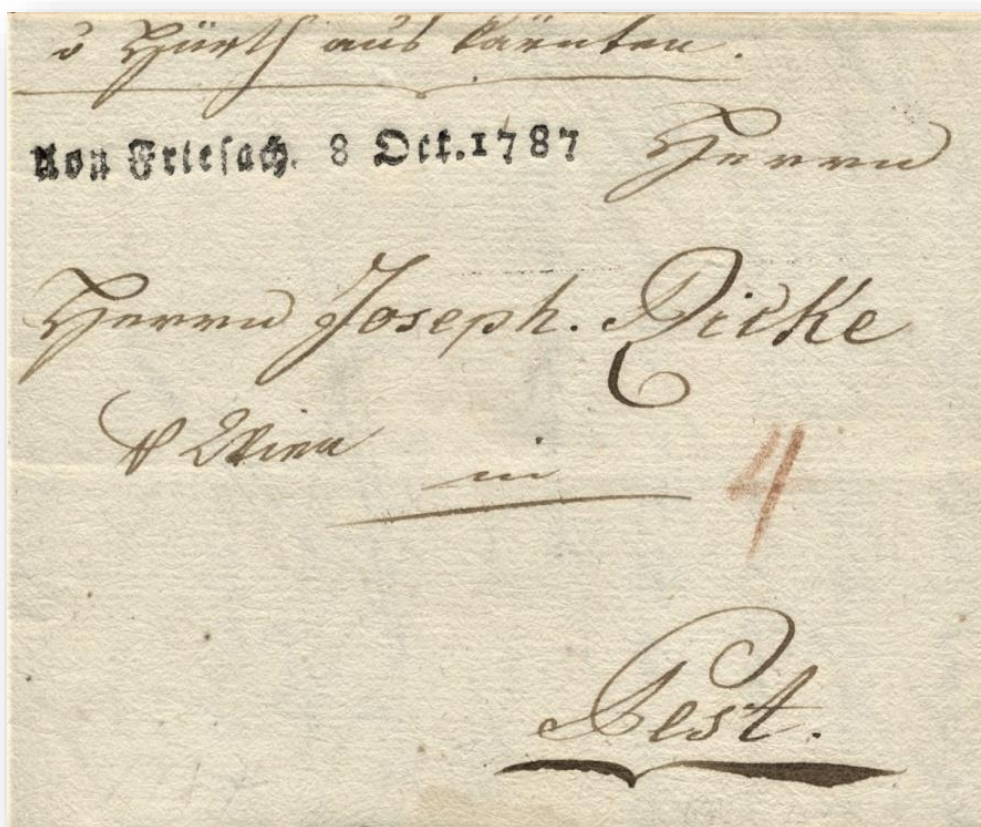 v Hürth aus Kärnten.
von Friesach. 8 Oct. 1787 Herrn
Herrn Joseph. Ricke
p Wien
in
4
Pest.